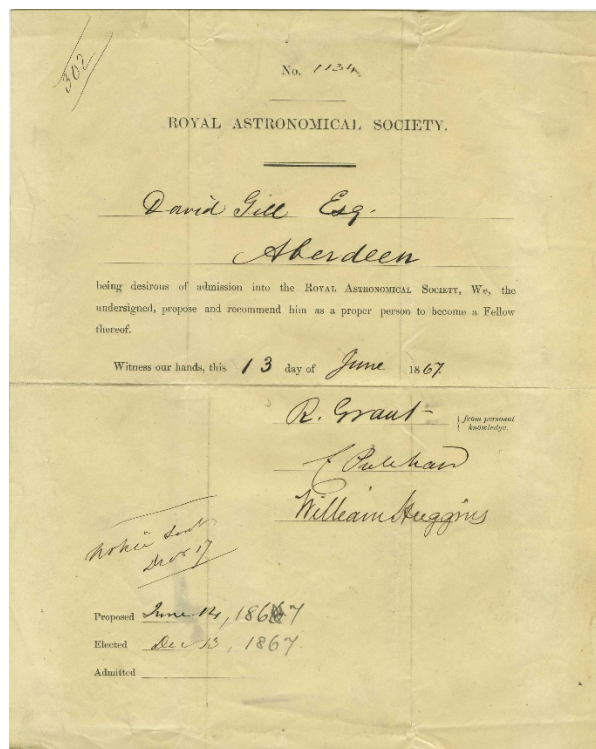 302
No. 1134
ROYAL ASTRONOMICAL SOCIETY.
David Gill Esq.
Aberdeen
being desirous of admission into the ROYAL ASTRONOMICAL SOCIETY, We, the
undersigned, propose and recommend him as a proper person to become a Fellow
thereof.
Witness our hands, this 13 day of June 1867.
R. Grant
from personal
knowledge.
William Huggins
Notice sent
Dec 17
Proposed June 14, 1867
Elected Dec 13, 1867.
Admitted